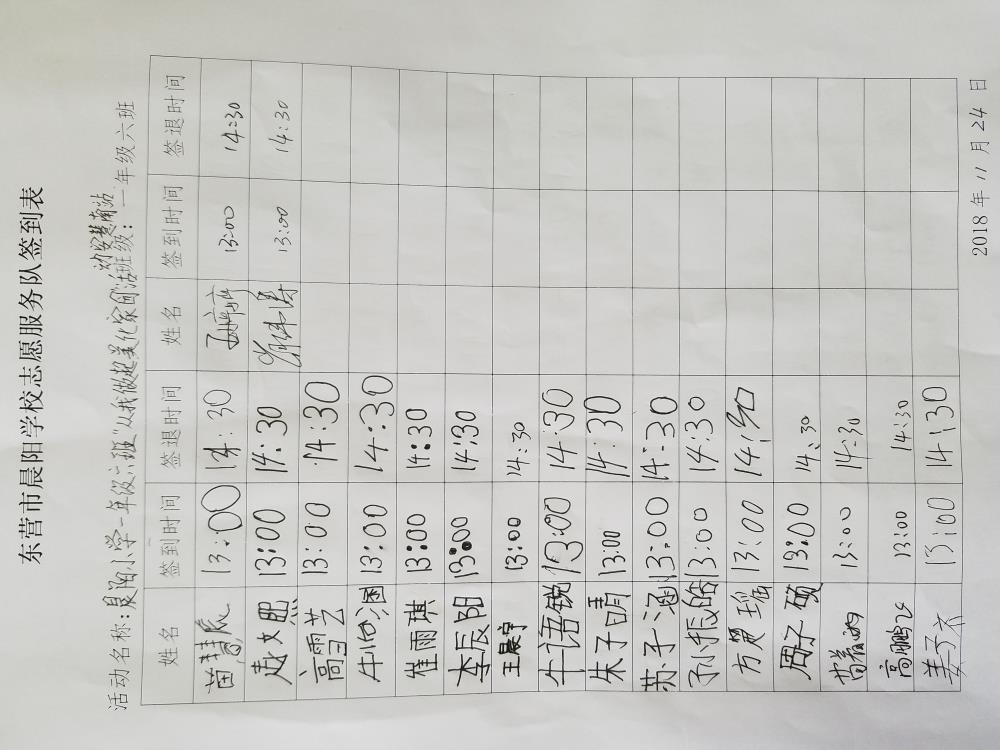 东营市晨阳学校志愿服务队签到表
活动名称：晨阳小学一年级六班"从我做起美化家园活动安慧南站 班级：一年级六班
姓名 签到时间 签退时间 姓名 签到时间 签退时间
苗慧辰 13:00 14:30 13:00 14:30
赵文熙 13:00 14:30 13:00 14:30
高雪艺 13:00 14:30
牛向涵 13:00 14:30
崔雨琪 13:00 14:30
李辰阳 13:00 14:30
王晨宇 13:00 14:30
牛语锐 13:00 14:30
朱子晴 13:00 14:30
苏子涵 13:00 14:30
13:00 14:30
方景瑶 13:00
周子硕 13:00 14:30
13:00 14:30
高鹏飞 13:00 14:30
姜子齐 13:00 14:30
2018 年 11 月 24 日